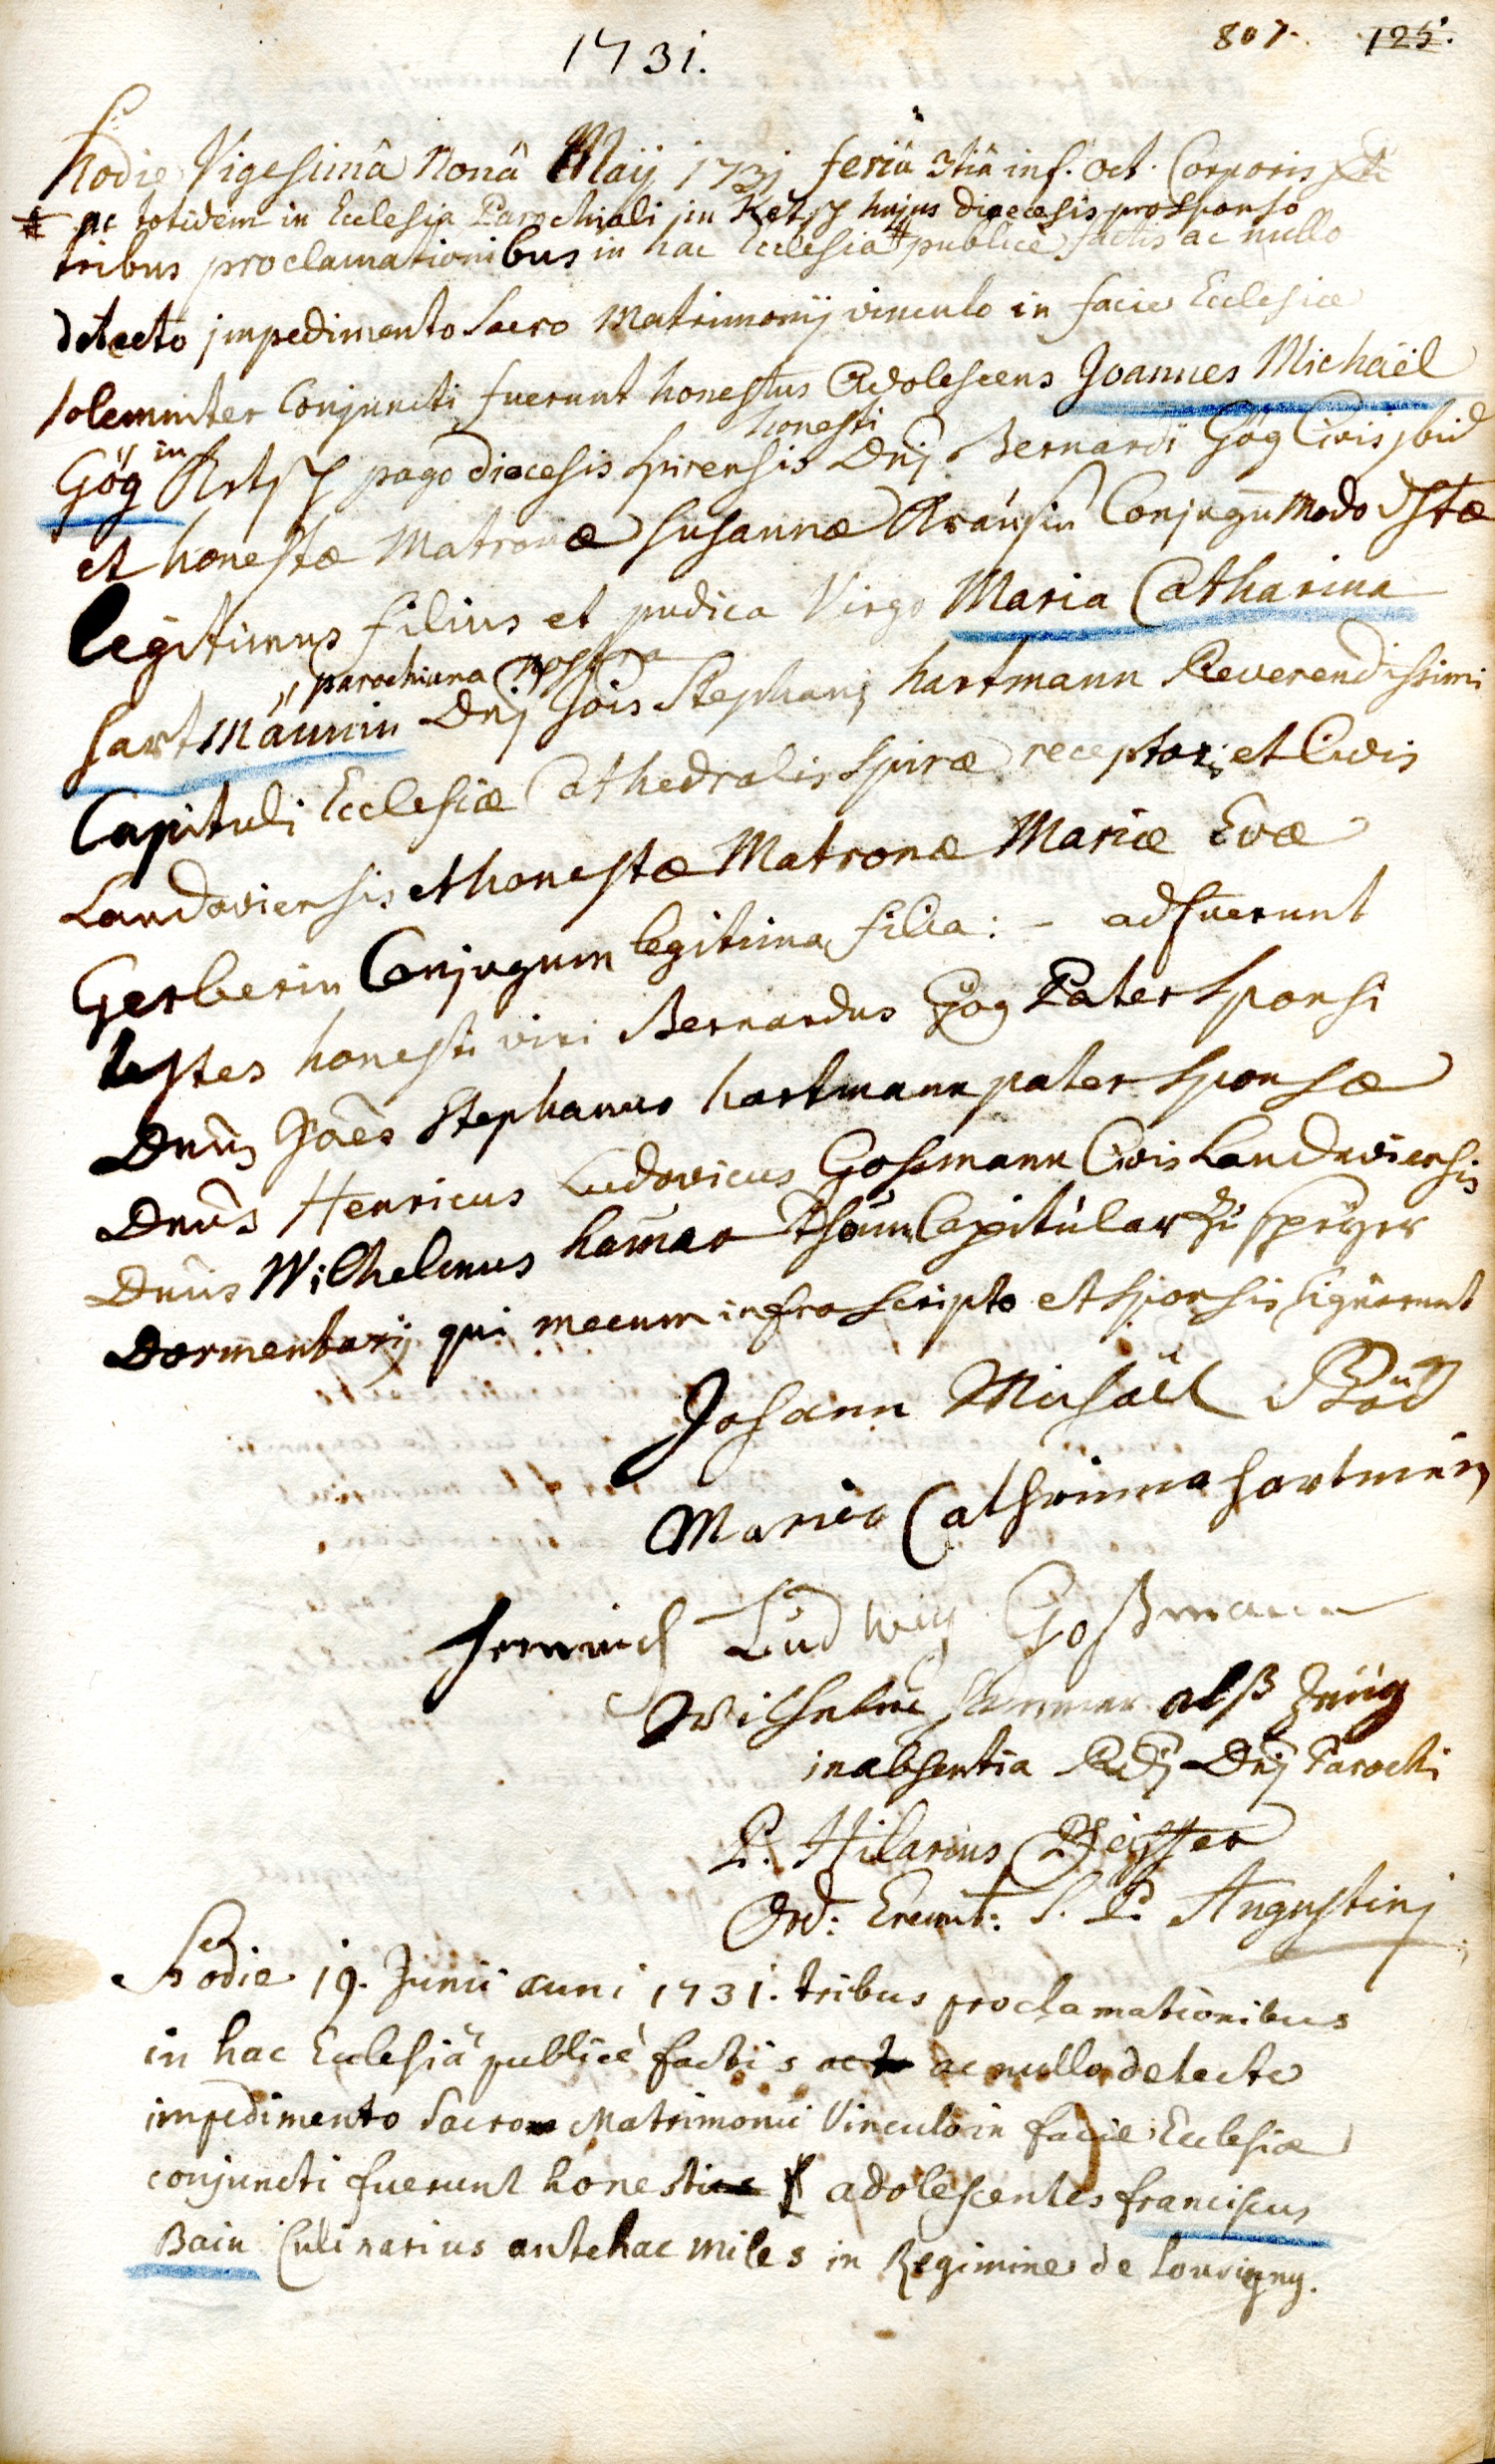 807. 125.
1731.
Hodie Vigesimâ Nonâ Maij 1731 feriâ 3tiâ inf. oct. Corporis Xti
# ac totidem in Ecclesia Parochiali in Ketsch hujus dioecesis pro sponso
tribus proclamationibus in hac Ecclesia # publicè factis ac nullo
detecto jmpedimento Sacro Matrimonij vinculo in facie Ecclesiæ
solemniter Conjuncti fuerunt honestus Adolescens Joannes Michaël
honesti
Gög in Ketsch pago dioecesis spirensis Dnj Bernardi Gög Civis jbid
et honestæ Matronæ Susannæ Kraüsin Conjugū modo dstæ
legitimus filius et pudica Virgo Maria Catharina
parochiana nostra
hartmännin Dnj Jois Stephani hartmann Reverendissimi
Capituli Ecclesiæ Cathedralis spiræ receptoris et Civis
Landaviensis et honestæ Matronæ Mariæ Evæ
Gerberin Conjugum legitima filia: - adfuerunt
testes honesti viri Bernardus Gög Pater Sponsi
Dnūs Joēs Stephanus hartmann pater sponsæ
Dnūs Henricus Ludovicus Gossmann Civis Landaviensis
Dnūs Wilhelmus ham̄er Thūm Capitular zu Speÿer
Dormentarij qui mecum infra scripto et sponsis signarunt
Johann Michaël
Maria Cathrinna hartmenin
Henrich Ludwig Goßmann
Wilhelm Hammer alß Zeüg
in absentia Rdj Dnj Parochi
P. Hilarius Pfeiffer
Ord: Eremit: S. P. Augustinj
Hodie 19. Junii anni 1731. tribus proclamationibus
in hac Ecclesiâ publicè factis ac nullo detecto
impedimento Sacro Matrimonii Vinculo in facie Ecclesiæ
conjuncti fuerunt honesti adolescentes franciscus
Bain Culinarius antehac miles in Regimine de Louvigny.